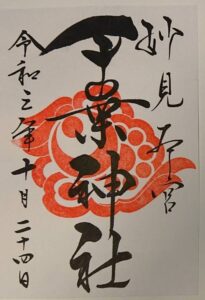 妙見本宮
千葉神社
令和三年十月二十四日